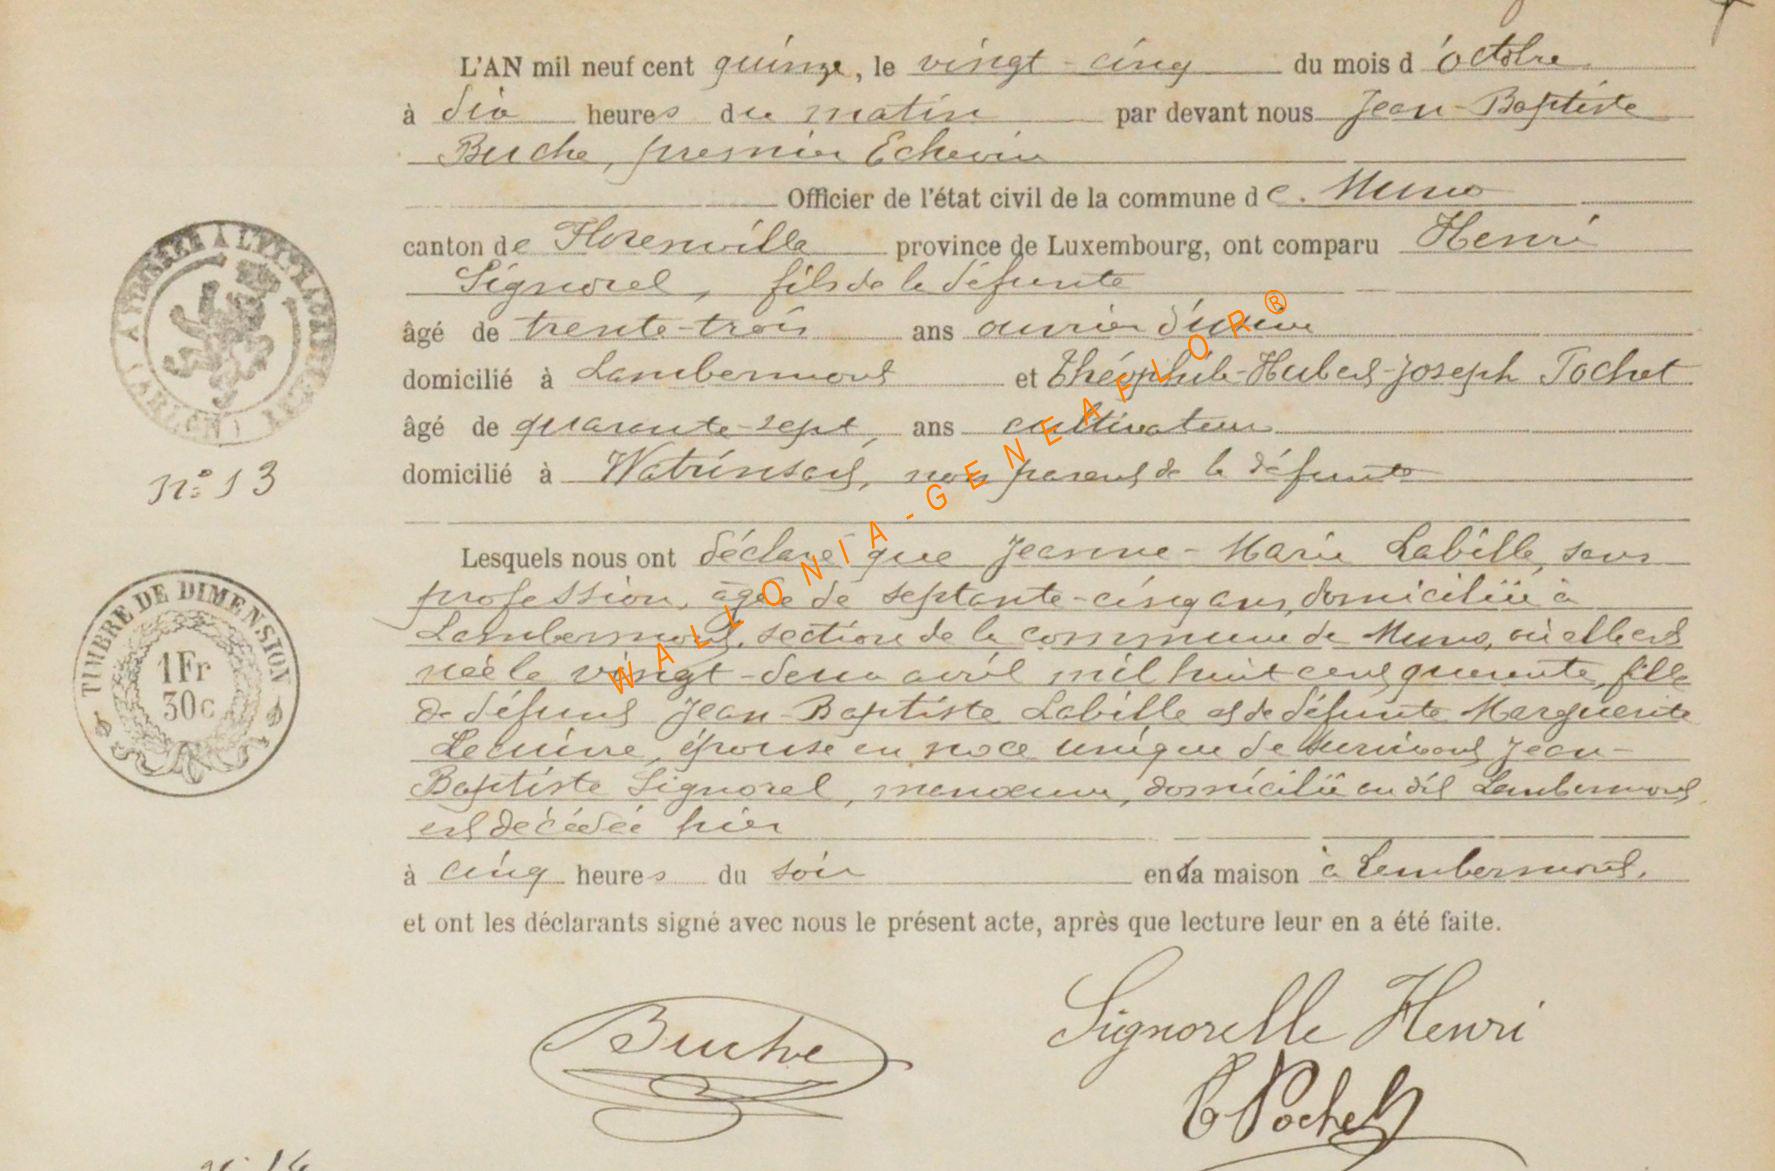 L'AN mil neuf cent quinze, le vingt-cinq du mois d'octobre
à dix heures du matin par devant nous Jean-Baptiste
Buche, premier Echevin
Officier de l'état civil de la commune de Muno
canton de Florenville province de Luxembourg, ont comparu Henri
Signorel, fils de la défunte
âgé de trente-trois ans ouvrier d'usine
domicilié à Lambermont et Théophile-Hubert-Joseph Pochet
âgé de quarante-sept, ans cultivateur
domicilié à Watrinsart, non parent de la défunte
Lesquels nous ont déclaré que Jeanne-Marie Labille, sans
profession, âgée de septante-cinq ans, domiciliée à
Lambermont, section de la commune de Muno, où elle est
née le vingt-deux avril mil huit cent quarante, fille
de défunt Jean-Baptiste Labille et de défunte Marguerite
Lecuivre, épouse en noce unique de survivant Jean-
Baptiste Signorel, manœuvre, domicilié au dit Lambermont,
est décédée hier
à cinq heures du soir en la maison à Lambermont,
et ont les déclarants signé avec nous le présent acte, après que lecture leur en a été faite.
Buche
Signorelle Henri
T Pochet
(ARLON)
n° 13
TIMBRE DE DIMENSION
1Fr
30c
n° 14
WALLONIA-GENEAFLOR®